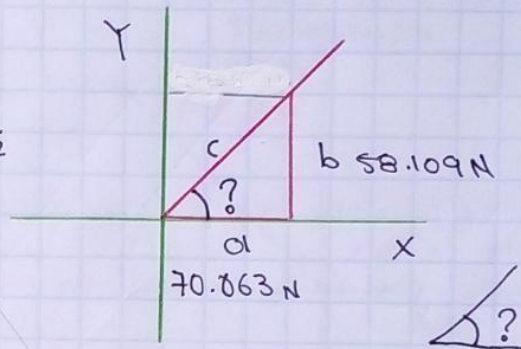 Y
c
b 58.109 N
?
a
X
70.863 N
?